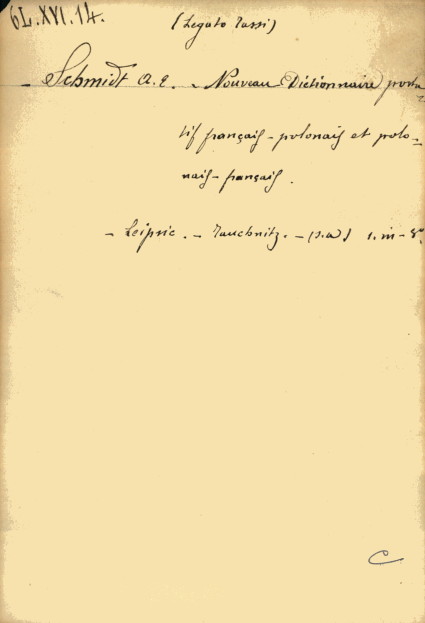 6L.XVI.14.
(Legato Tassi)
- Schmidt A. E. - Nouveau Dictionnaire porta-
tif français - polonais et polo-
nais - français.
- Leipsic. - Tauchnitz. - (s.a.) 1. in - 8º.
C